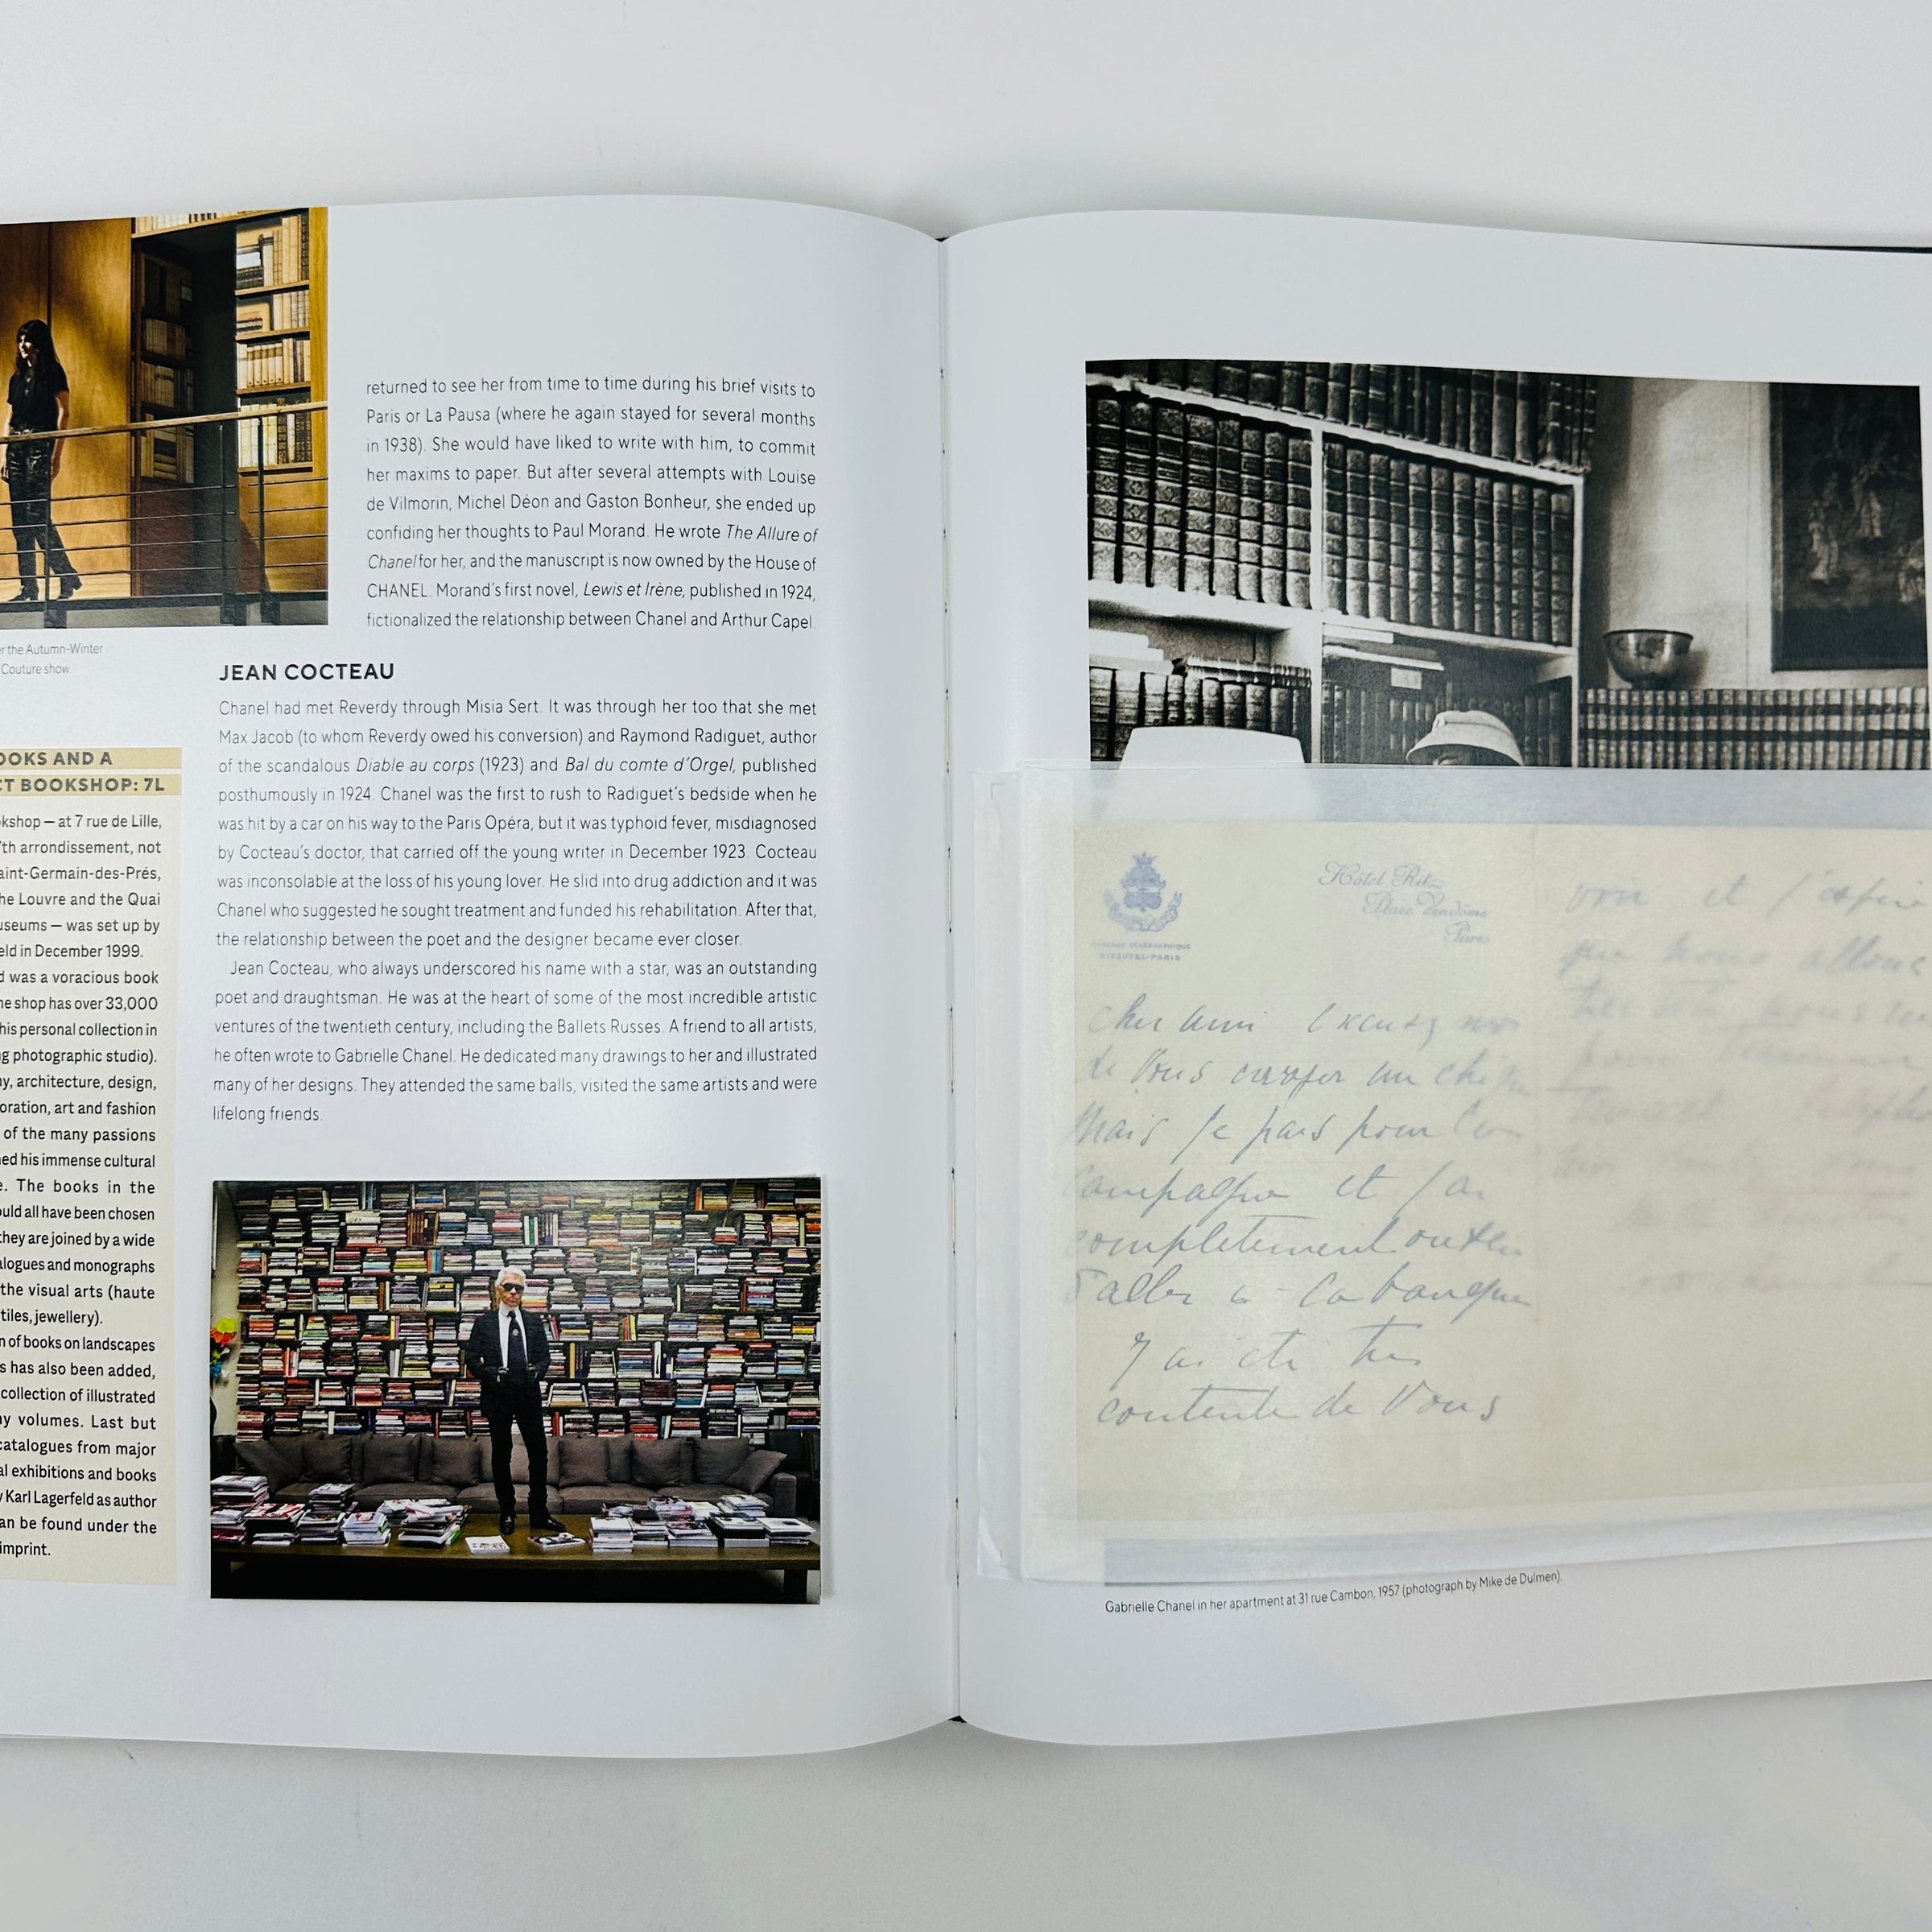 er the Autumn-Winter
Couture show.
OOKS AND A
CT BOOKSHOP: 7L
okshop — at 7 rue de Lille,
7th arrondissement, not
aint-Germain-des-Prés,
he Louvre and the Quai
useums — was set up by
eld in December 1999.
d was a voracious book
he shop has over 33,000
his personal collection in
ng photographic studio).
hy, architecture, design,
oration, art and fashion
of the many passions
ned his immense cultural
e. The books in the
ould all have been chosen
they are joined by a wide
alogues and monographs
the visual arts (haute
tiles, jewellery).
n of books on landscapes
s has also been added,
collection of illustrated
ny volumes. Last but
catalogues from major
al exhibitions and books
y Karl Lagerfeld as author
an be found under the
imprint.
returned to see her from time to time during his brief visits to
Paris or La Pausa (where he again stayed for several months
in 1938). She would have liked to write with him, to commit
her maxims to paper. But after several attempts with Louise
de Vilmorin, Michel Déon and Gaston Bonheur, she ended up
confiding her thoughts to Paul Morand. He wrote The Allure of
Chanel for her, and the manuscript is now owned by the House of
CHANEL. Morand's first novel, Lewis et Irène, published in 1924,
fictionalized the relationship between Chanel and Arthur Capel.
JEAN COCTEAU
Chanel had met Reverdy through Misia Sert. It was through her too that she met
Max Jacob (to whom Reverdy owed his conversion) and Raymond Radiguet, author
of the scandalous Diable au corps (1923) and Bal du comte d'Orgel, published
posthumously in 1924. Chanel was the first to rush to Radiguet's bedside when he
was hit by a car on his way to the Paris Opéra, but it was typhoid fever, misdiagnosed
by Cocteau's doctor, that carried off the young writer in December 1923. Cocteau
was inconsolable at the loss of his young lover. He slid into drug addiction and it was
Chanel who suggested he sought treatment and funded his rehabilitation. After that,
the relationship between the poet and the designer became ever closer.
Jean Cocteau, who always underscored his name with a star, was an outstanding
poet and draughtsman. He was at the heart of some of the most incredible artistic
ventures of the twentieth century, including the Ballets Russes. A friend to all artists,
he often wrote to Gabrielle Chanel. He dedicated many drawings to her and illustrated
many of her designs. They attended the same balls, visited the same artists and were
lifelong friends.
Hôtel Ritz
Place Vendôme
Paris
RITZOTEL-PARIS
cher ami Excusez moi
de Vous envoyer un chèque
Mais je pars pour la
campagne et j'ai
completement oublié
d'aller a la banque
J'ai été très
contente de Vous
voir et j'espère
que nous allons
Gabrielle Chanel in her apartment at 31 rue Cambon, 1957 (photograph by Mike de Dulmen).